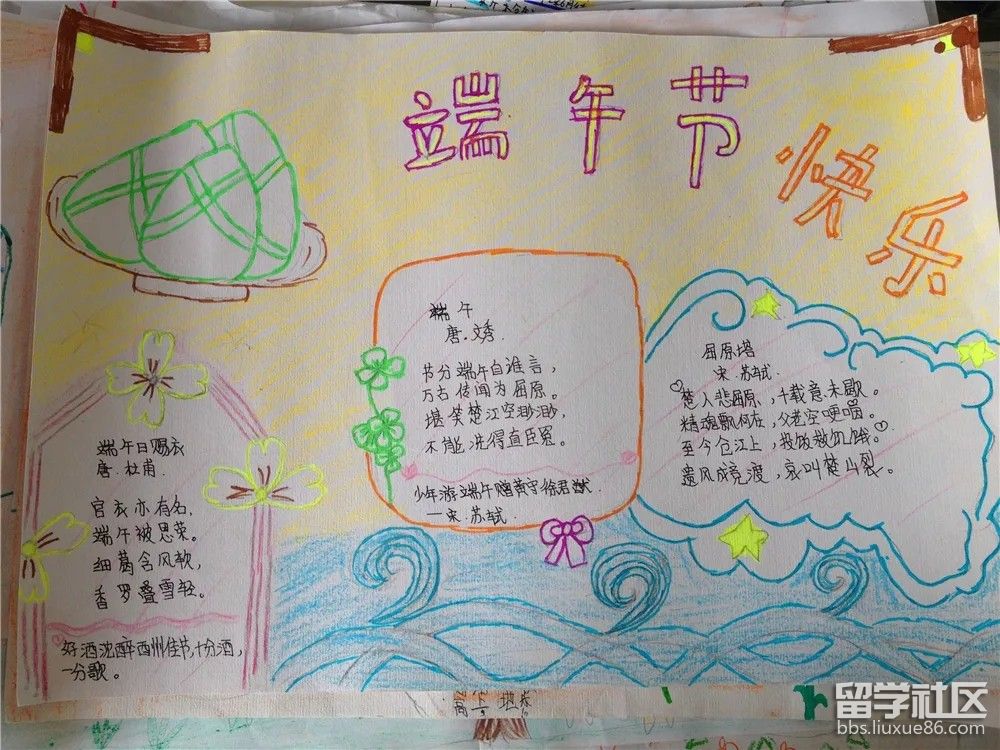 端午节
快乐
端午
唐.文秀.
节分端午自谁言，
万古传闻为屈原。
堪笑楚江空渺渺，
不能洗得直臣冤。
少年游端午赠黄守徐君猷.
一宋.苏轼.
屈原塔
宋.苏轼.
楚人悲屈原，千载意未歇。
精魂飘何在，父老空哽咽。
至今仓江上，投饭救饥饿。
遗风成竞渡，哀叫楚山裂。
端午日赐衣
唐.杜甫.
宫衣亦有名，
端午被恩荣。
细葛含风软，
香罗叠雪轻。
好酒沈醉西州佳节，十分酒，
一分歌。
留学社区
bbs.liuxue86.com